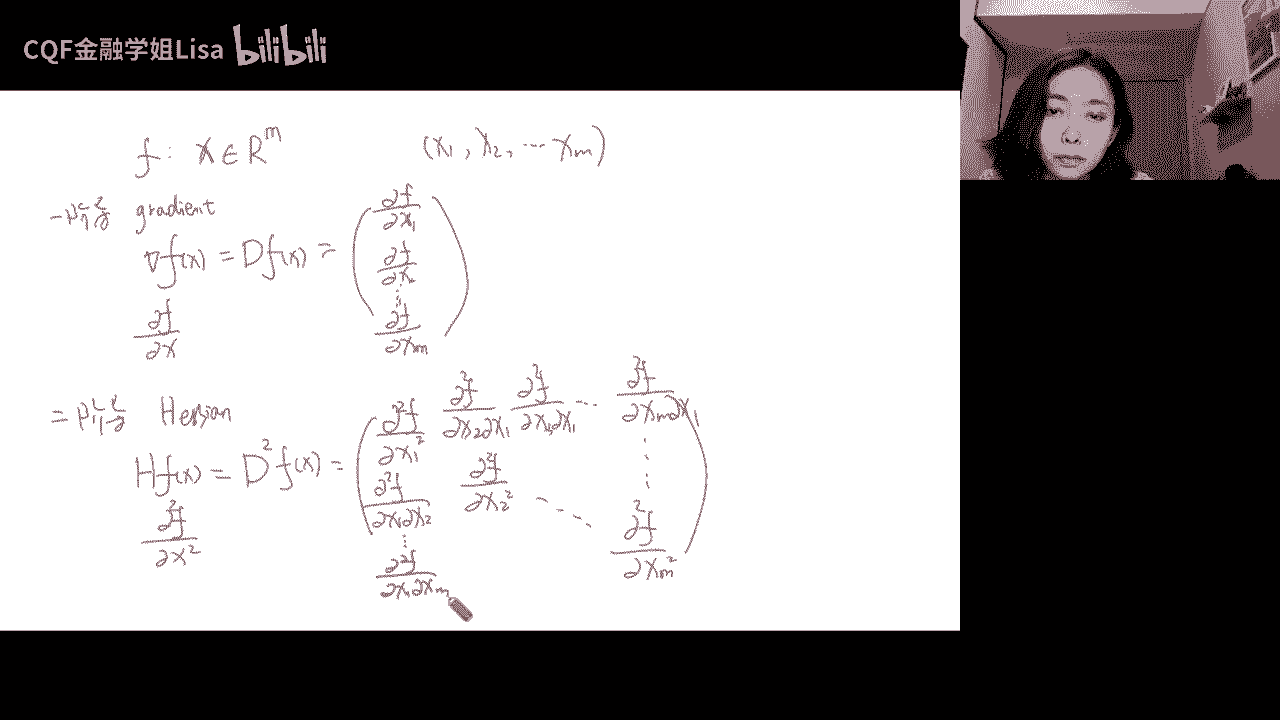 CQF金融学姐Lisa bilibili
f: x ∈ R^m (x₁, x₂, ⋯ xₘ)
一阶 gradient
∇f(x) = Df(x) = (∂f/∂x₁ ∂f/∂x₂ ⋮ ∂f/∂xₘ)
∂f/∂x
二阶 Hessian
Hf(x) = D²f(x) = (∂²f/∂x₁² ∂²f/∂x₂∂x₁ ⋯ ∂²f/∂xₘ∂x₁
∂²f/∂x₁∂x₂ ∂²f/∂x₂² ⋱ ⋮
⋮ ∂²f/∂x₁∂xₘ ∂²f/∂xₘ²)
∂²f/∂x²